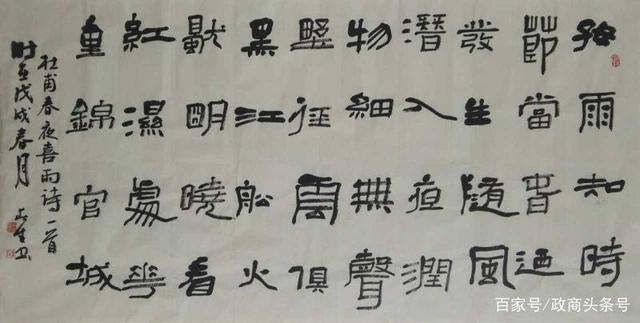 好雨知時
節當春迺
發生隨風
潛入夜潤
物細無聲
野徑雲俱
黑江船火
獨明曉看
紅濕處花
重錦官城
杜甫春夜喜雨诗一首
时在戊戌春月
百家号/政商头条号